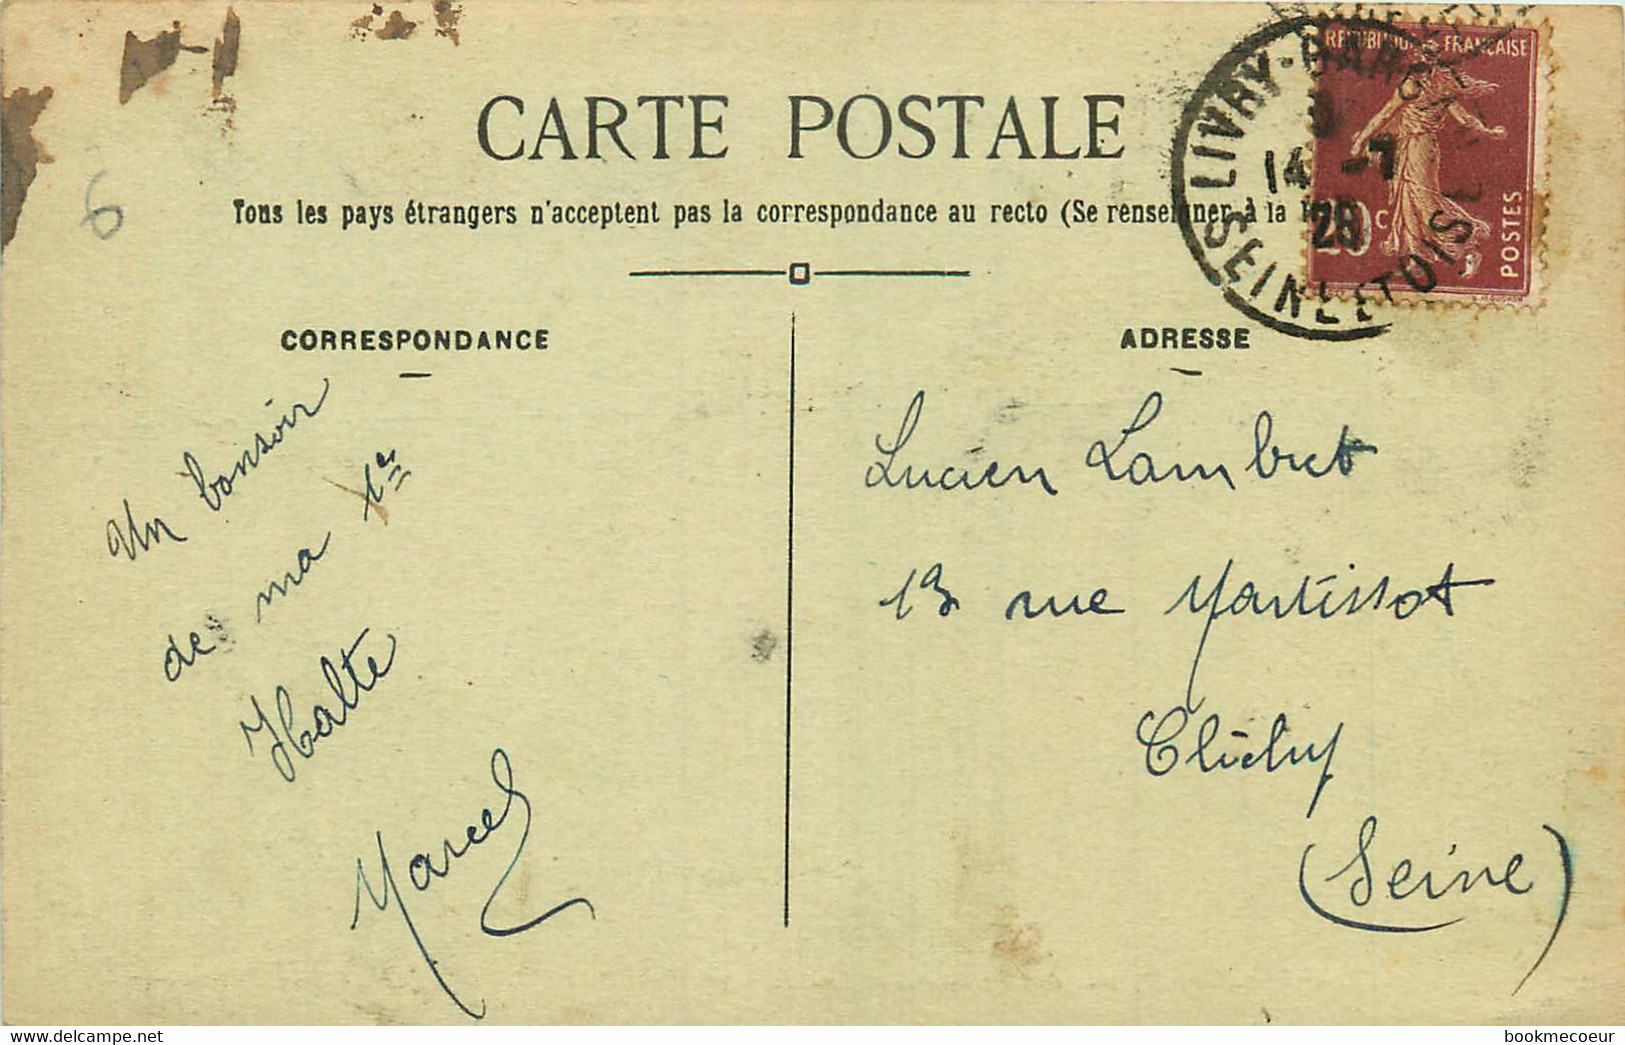 CARTE POSTALE
Tous les pays étrangers n'acceptent pas la correspondance au recto (Se renseigner à la
6
REPUBLIQUE FRANÇAISE
POSTES
20c
LIVRY-GARGAN
14 -7
26
SEINE ET OISE
CORRESPONDANCE
Un bonsoir
de ma 1e
Halte
Marcel
ADRESSE
Lucien Lambret
13 rue Martissot
Clichy
(Seine)
https://www.delcampe.net
bookmecoeur